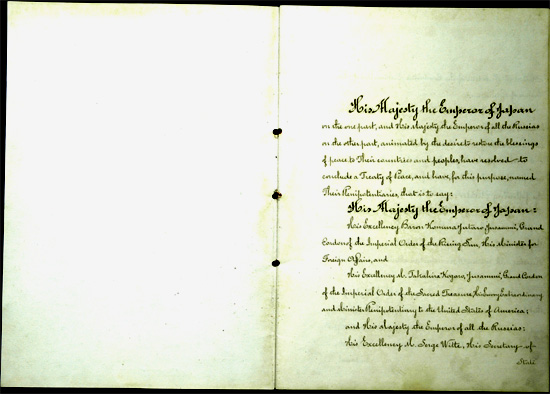 His Majesty the Emperor of Japan
on the one part, and His Majesty the Emperor of all the Russias
on the other part, animated by the desire to restore the blessings
of peace to Their countries and peoples, have resolved to
conclude a Treaty of Peace, and have, for this purpose, named
Their Plenipotentiaries, that is to say:
His Majesty the Emperor of Japan:
His Excellency Baron Komura Jutaro, Jusammi, Grand
Cordon of the Imperial Order of the Rising Sun, His Minister for
Foreign Affairs, and
His Excellency M. Takahira Kogoro, Jusammi, Grand Cordon
of the Imperial Order of the Sacred Treasure, His Envoy Extraordinary
and Minister Plenipotentiary to the United States of America;
and His Majesty the Emperor of all the Russias:
His Excellency M. Serge Witte, His Secretary of
State